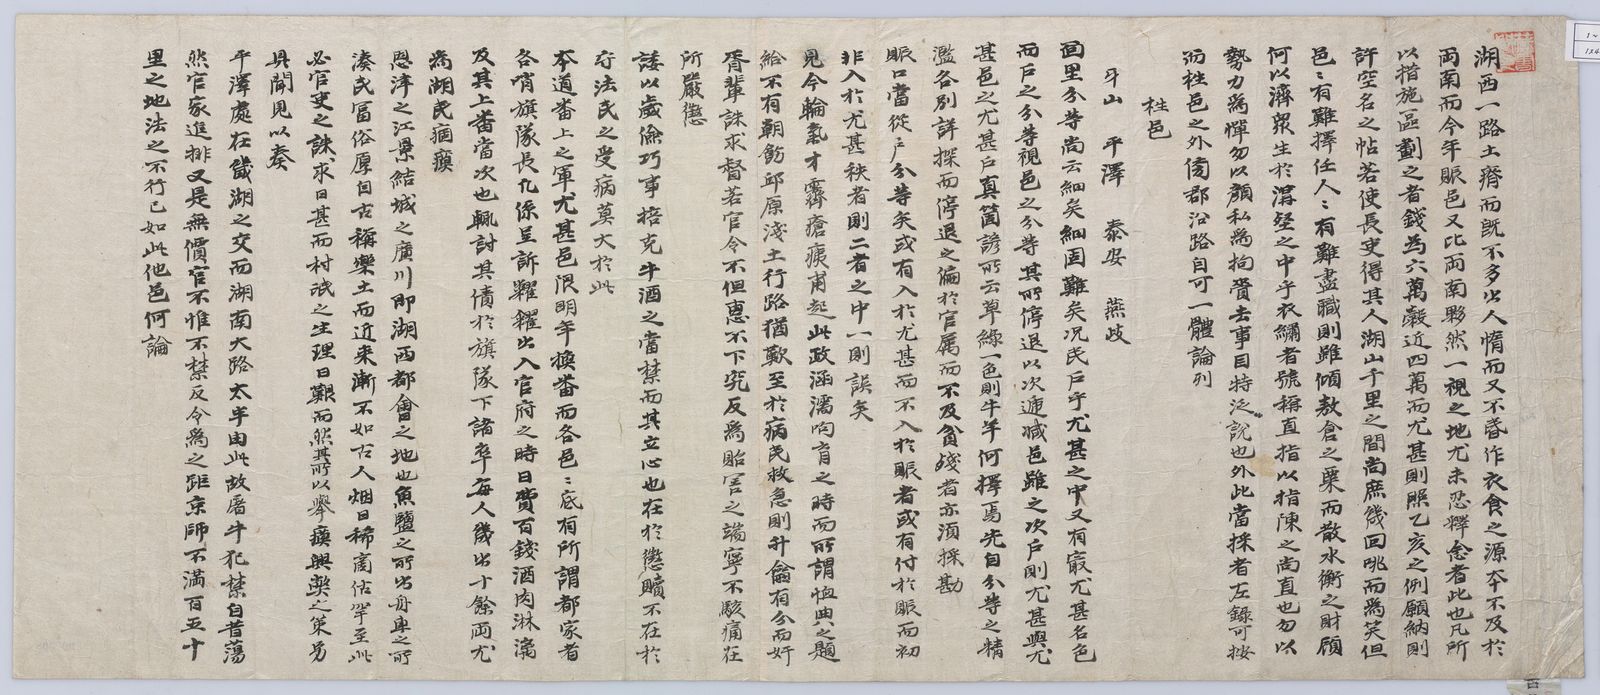 湖西一路土瘠而旣不多出人惰而又不昏作衣食之源夲不及於
両南而今年賑邑又比両南夥然一視之地尤未忍釋念者此也凡所
以措施區劃之者錢為六萬穀近四萬而尤甚則照乙亥之例願納則
許空名之帖若使長吏得其人湖山千里之間尚庶幾回咷而為笑但
邑〻有難擇任人〻有難盡職則雖傾敖倉之粟而散水衡之財顧
何以濟衆生於溝壑之中乎衣繡者號稱直指以指陳之尚直也勿以
勢力為憚勿以顔私為拘賷去事目特泛說也外此當採者左錄可按
而栍邑之外傍郡沿路自可一體論列
栍邑
牙山 平澤 泰安 燕歧
面里分等尚云細矣細固難矣况民戶乎尤甚之中又有最尤甚名色
而戶之分等視邑之分等其所停退以次遞减邑雖之次戶則尤甚與尤
甚邑之尤甚戶真箇諺所云草綠一色則牛羊何擇焉先自分等之精
濫各別詳探而停退之偏於官属而不及貧殘者亦須採勘
賑口當從戶分等矣或有入於尤甚而不入於賑者或有付於賑而初
非入於尤甚秩者則二者之中一則誤矣
見今輪氣才霽瘡痍甫起此政涵濡呴育之時而所謂恤典之題
給不有朝飭邱原淺土行路猶歎至於病民救急則升龠有分而奸
胥輩誅求督若官令不但惠不下究反為貽害之端寧不駭痛在
所嚴懲
諉以歲儉巧事掊克牛酒之當禁而其立心也在於懲贖不在於
守法民之受病莫大於此
夲道番上之軍尤甚邑限明年換番而各邑〻底有所謂都家者
各哨旗隊長凡係呈訴糶糴出入官府之時日費百錢酒肉淋漓
及其上番當次也輒討其債於旗隊下諸卒每人幾出十餘両尤
為湖民痼瘼
恩津之江景結城之廣川卽湖西都會之地也魚鹽之所出舟車之所
湊民富俗厚自古稱樂土而近来漸不如古人烟日稀商估罕至此
必官吏之誅求日甚而村氓之生理日艱而然其所以擧瘼興樂之策另
具聞見以奏
平澤處在畿湖之交而湖南大路太半由此故屠牛犯禁自昔蕩
然官家進排又是無價官不惟不禁反令為之距京師不滿百五十
里之地法之不行已如此他邑何論